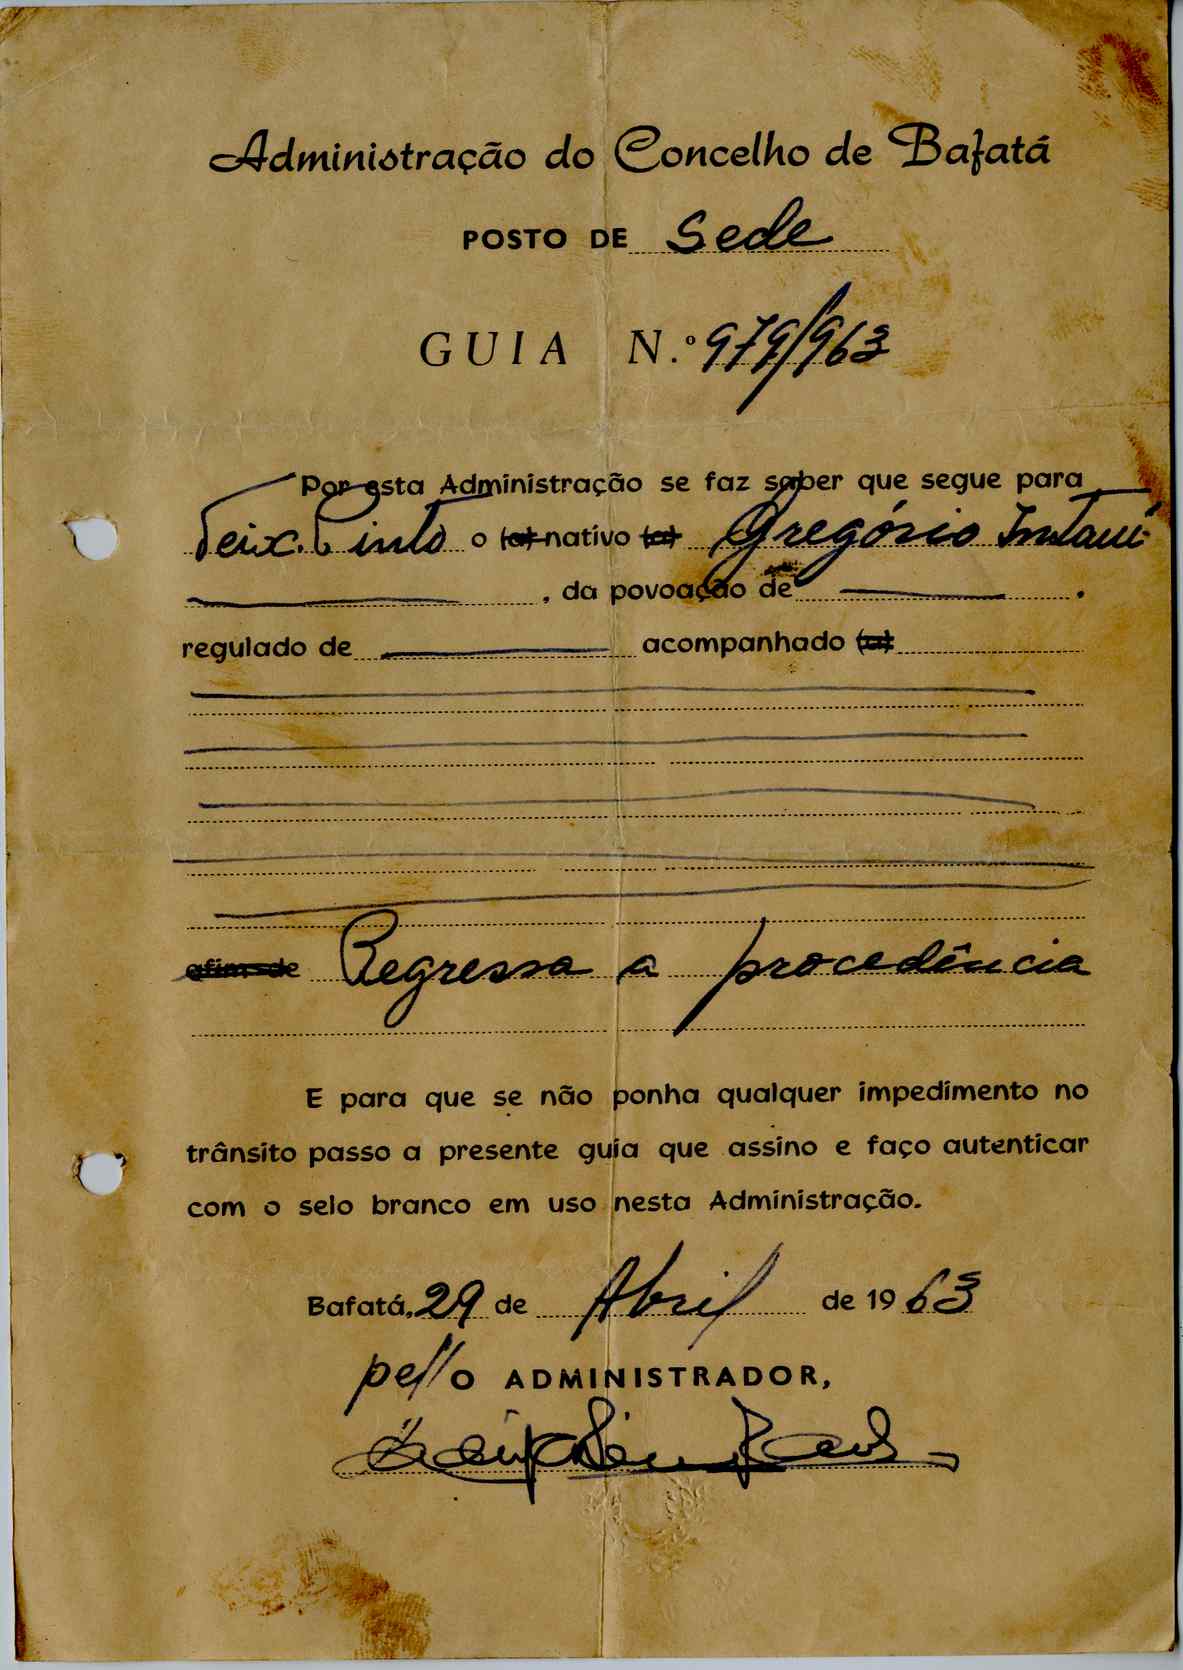 Administração do Concelho de Bafatá
POSTO DE Sede
GUIA N.º 979/963
Por esta Administração se faz saber que segue para
Teix. Pinto o (a) nativo (a) Gregório
, da povoação de
regulado de acompanhado (a)
afim de Regressa a procedência
E para que se não ponha qualquer impedimento no
trânsito passo a presente guia que assino e faço autenticar
com o selo branco em uso nesta Administração.
Bafatá, 29 de Abril de 1963
pel/O ADMINISTRADOR,